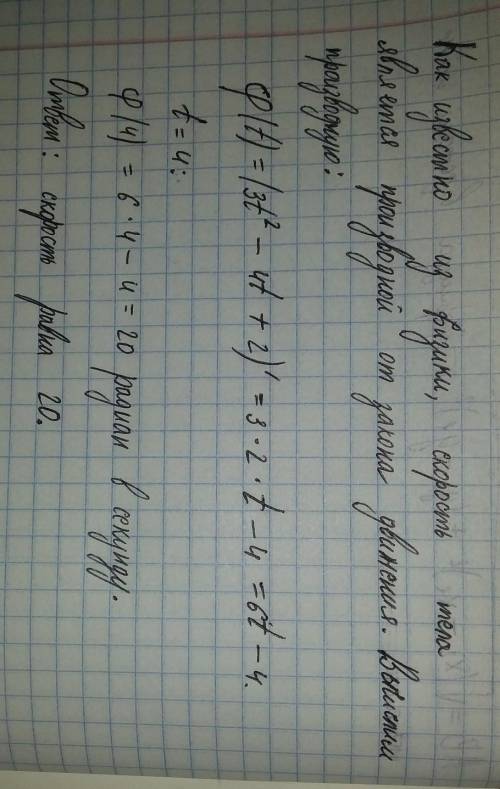 Как известно из физики, скорость тела
является производной от закона движения. Вычислим
производную:
φ(t) = (3t² - 4t + 2)' = 3·2·t - 4 = 6t - 4.
t = 4:
φ(4) = 6·4 - 4 = 20 радиан в секунду.
Ответ: скорость равна 20.